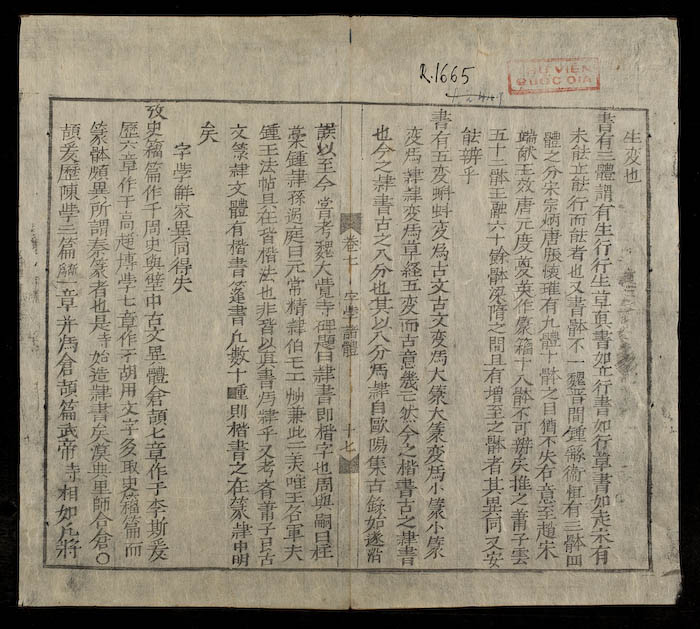 R.1665
THƯ VIỆN
QUỐC GIA
生変也
書有三體謂有生行行生草真書如立行書如行草書如走未有
未能立能行而能者也又書骵不一魏晋間鍾繇衛恒有三骵四
體之分宋宗炳唐張懷瓘有九體十骵之目猶不失右意至趙宋
端献王效唐元度夢英作篆籀十八骵不可辨矣推之蕭子雲
五十二骵王融六十餘骵梁隋之間且有增至之骵者其異同又安
能辨乎
書有五変蝌蚪変為古文古文変爲大篆大篆変爲小篆小篆
変爲隷隷変爲草経五変而古意幾亡然今之楷書古之隷書
也今之隷書古之八分也其以八分爲隷自歐陽集古録始遂沿
卷七 字學諸體 十七
誤以至今嘗考魏大覺寺碑題曰隷書即楷字也周興嗣曰杜
稾鍾隷孫過庭曰元常精隷伯工兼此二美唯王右軍夫
鍾王法帖具在皆楷法也非皆以真書爲隷乎又考斉蕭子良古
文篆隷文體有楷書篷書凡數十種則楷書之在篆隷中明
矣
字學觧家異同得失
攷史籀篇作于周史與壁中古文異體倉頡七章作于李斯爰
歴六章作于高趙博學七章作于胡用文字多取史籀篇而
篆骵頗異所謂秦篆者也是时始造隷書矣漢興里師合倉〇
頡爰歴陳學三篇斷一章并爲倉頡篇武帝寺相如凡将